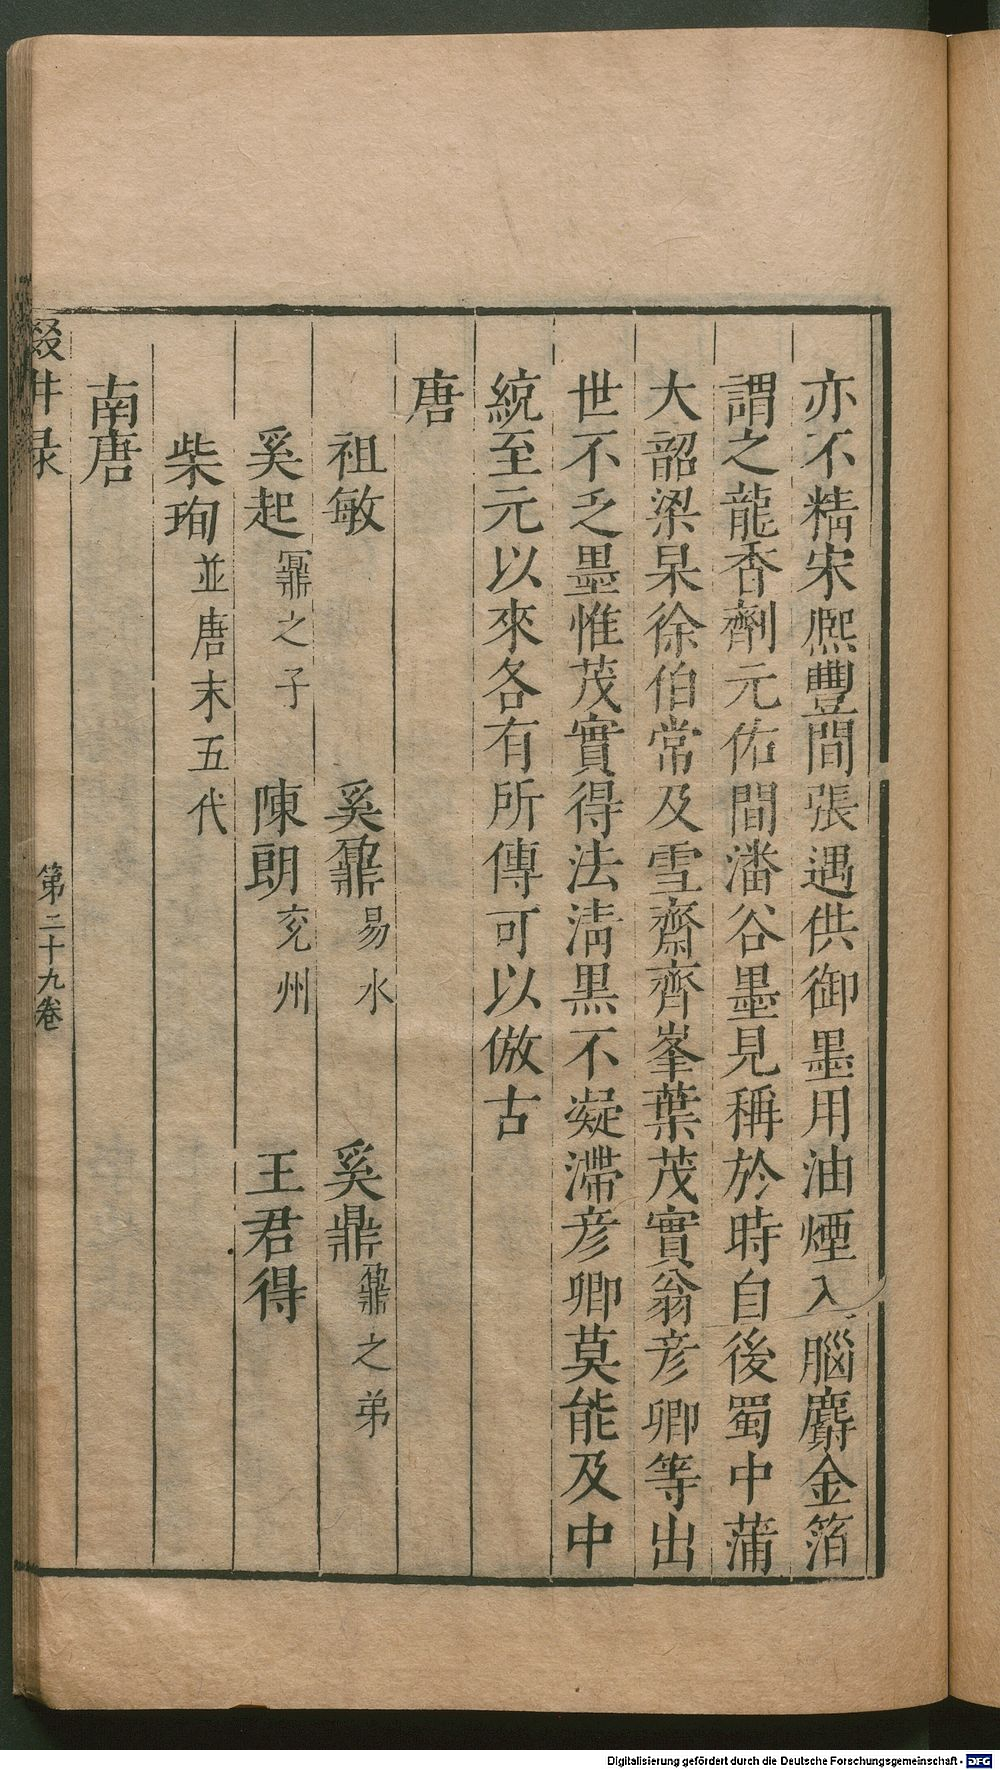 亦不精宋熙豐間張遇供御墨用油煙入腦麝金箔
謂之龍香劑元佑間潘谷墨見稱於時自後蜀中蒲
大韶梁杲徐伯常及雪齋齊峯葉茂實翁彦卿等出
世不乏墨惟茂實得法清黒不凝滯彦卿莫能及中
統至元以來各有所傳可以倣古
唐
祖敏 奚鼐易水 奚鼎鼐之弟
奚起鼐之子 陳朗兖州 王君得
柴珣並唐末五代
南唐
第二十九卷
Digitalisierung gefördert durch die Deutsche Forschungsgemeinschaft - DFG